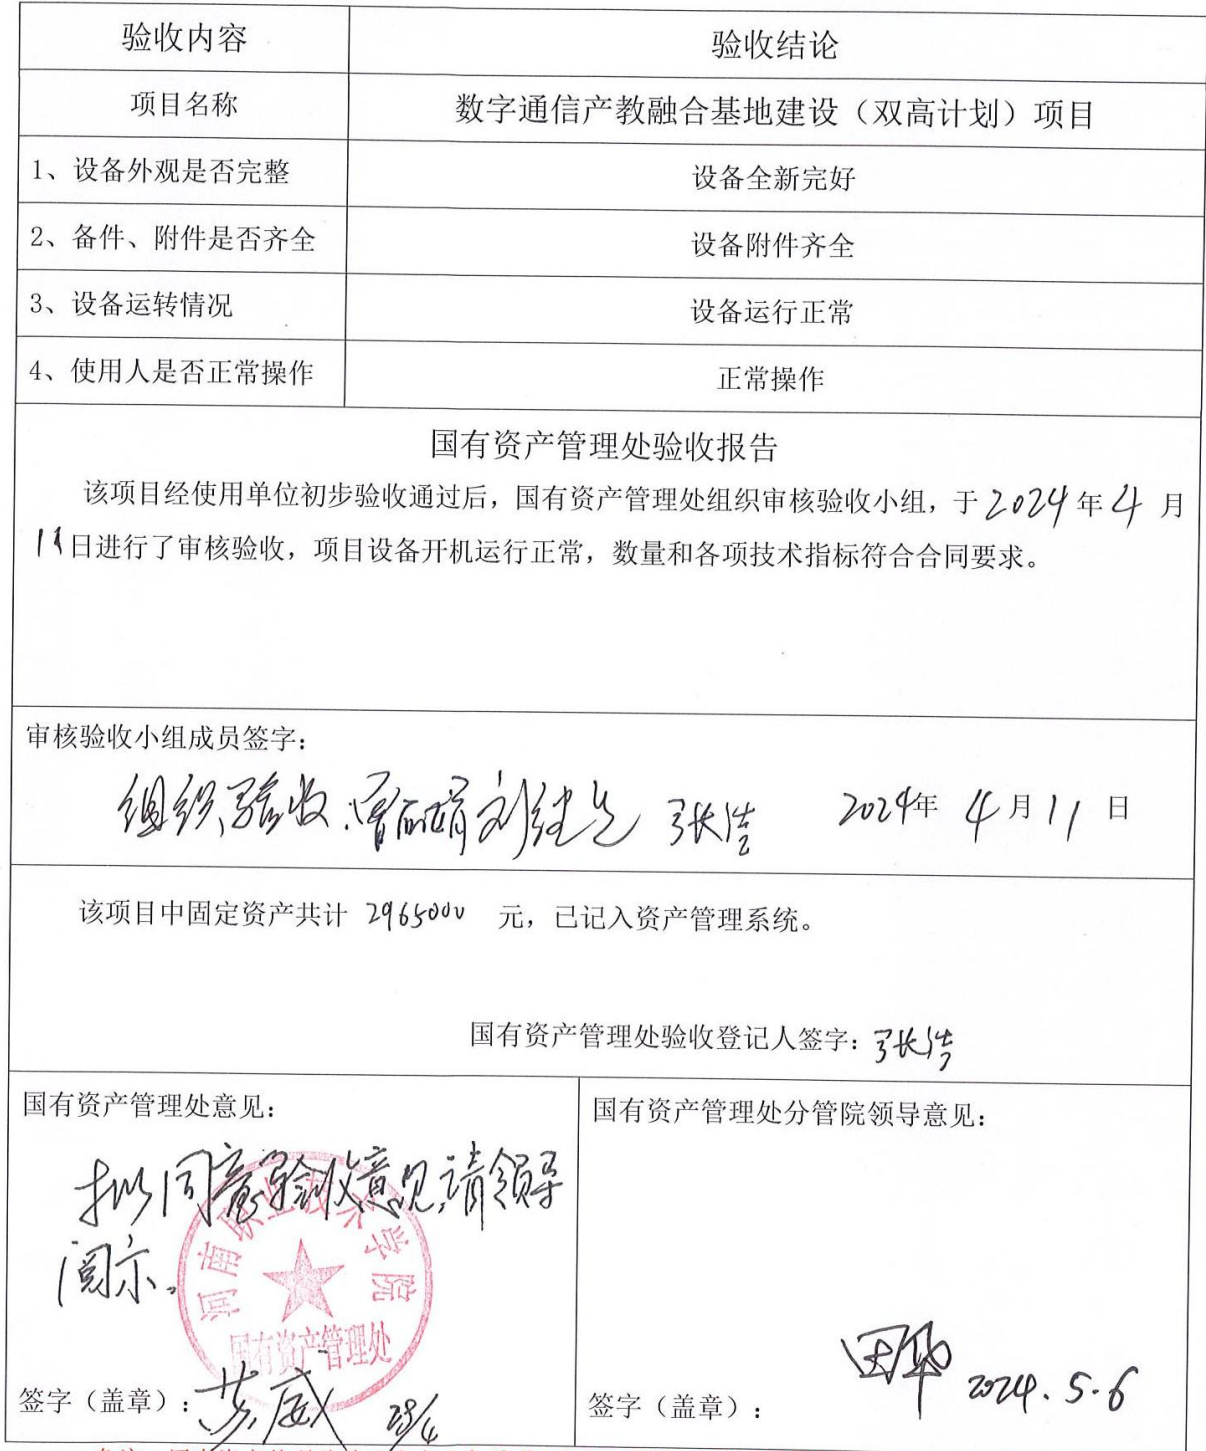 验收内容 验收结论
项目名称 数字通信产教融合基地建设（双高计划）项目
1、设备外观是否完整 设备全新完好
2、备件、附件是否齐全 设备附件齐全
3、设备运转情况 设备运行正常
4、使用人是否正常操作 正常操作
国有资产管理处验收报告
该项目经使用单位初步验收通过后，国有资产管理处组织审核验收小组，于2024年4月
11日进行了审核验收，项目设备开机运行正常，数量和各项技术指标符合合同要求。
审核验收小组成员签字：
组织验收 张浩 2024年4月11日
该项目中固定资产共计 2965000 元，已记入资产管理系统。
国有资产管理处验收登记人签字：张浩
国有资产管理处意见：
拟同意验收意见，请领导
阅示。
河南职业技术学院
国有资产管理处
签字（盖章）：
国有资产管理处分管院领导意见：
2024.5.6
签字（盖章）：